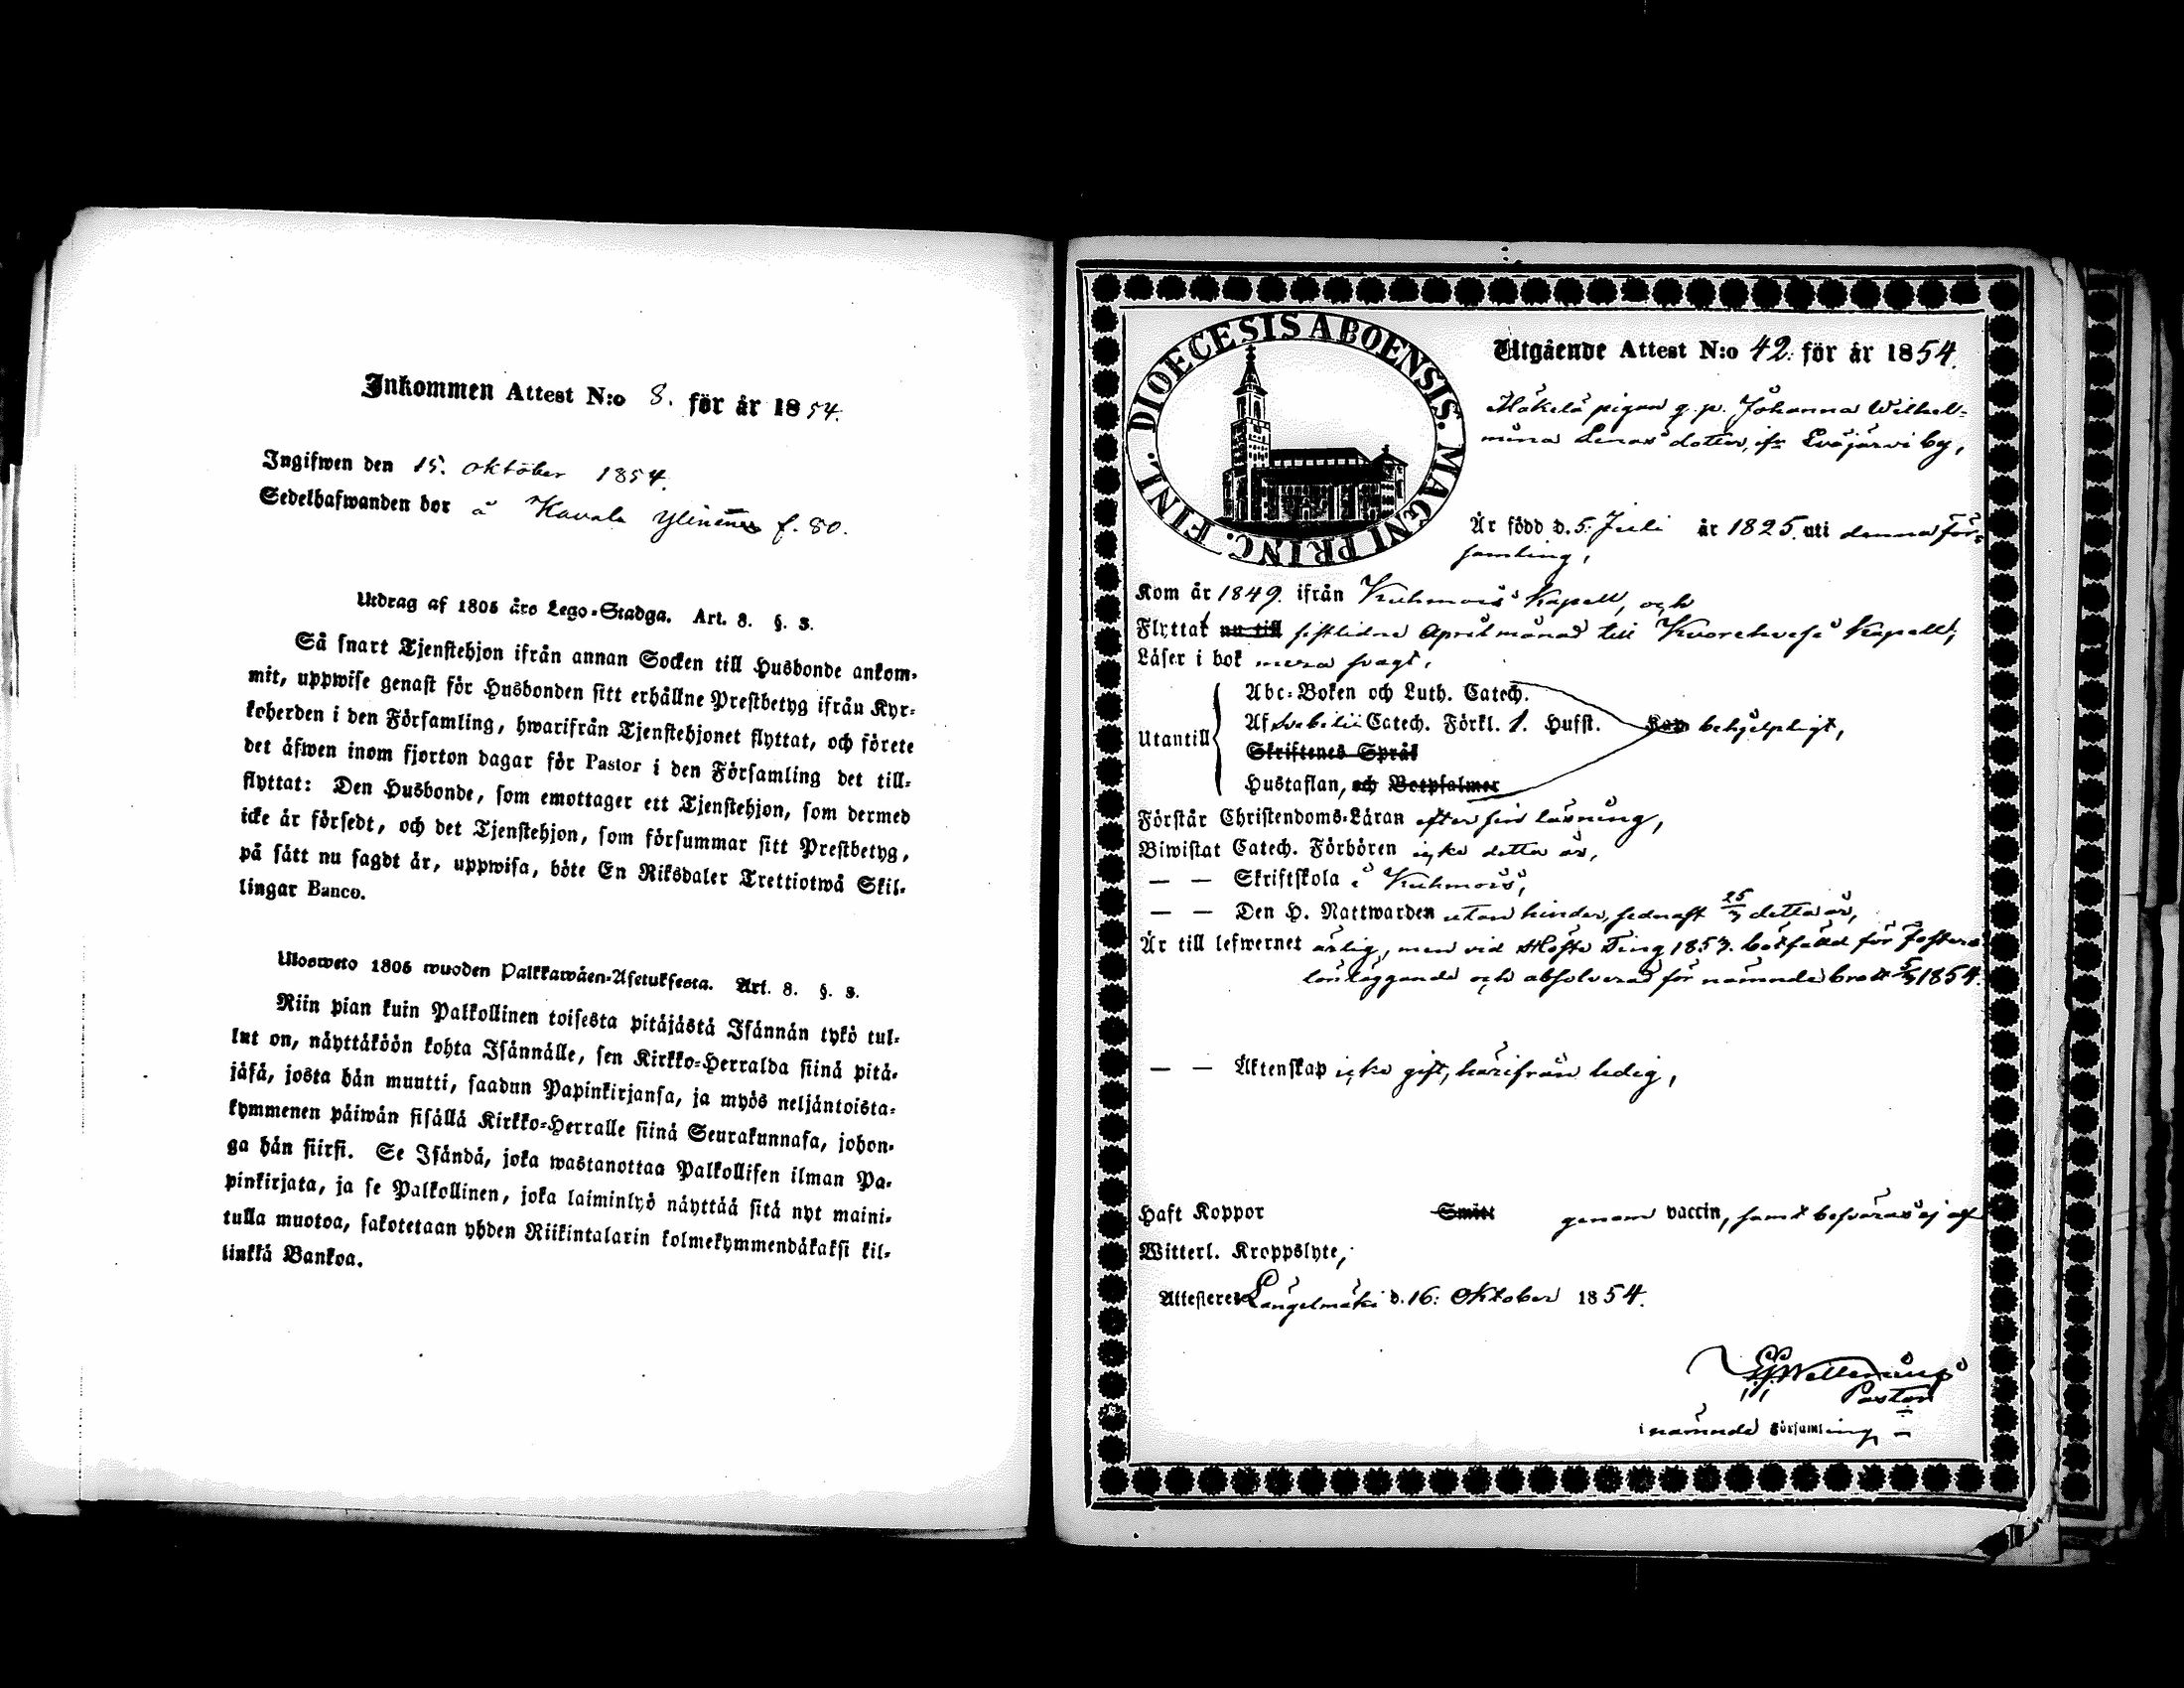 Inkommen Attest N:o 8. för år 1854.
Ingifwen den 15. oktober 1854.
Sedelhafwanden bor å Kavala Ylinen f. 80.
Utdrag af 1805 års Lego-Stadga. Art. 8. §. 3.
Så snart Tjenstehjon ifrån annan Socken till Husbonde ankom-
mit, uppwise genast för Husbonden sitt erhållne Prestbetyg ifrån Kyr-
koherden i den Församling, hwarifrån Tjenstehjonet flyttat, och förete
det äfwen inom fjorton dagar för Pastor i den Församling det till-
flyttat: Den Husbonde, som emottager ett Tjenstehjon, som dermed
icke är försedt, och det Tjenstehjon, som försummar sitt Prestbetyg,
på sätt nu sagdt är, uppwisa, böte En Riksdaler Trettiotwå Skil-
lingar Banco.
Ulosweto 1805 wuoden Palkkawäen-Asetuksesta. Art. 8. §. 3.
Niin pian kuin Palkollinen toisesta pitäjästä Isännän tykö tul-
lut on, näyttäköön kohta Isännälle, sen Kirkko-Herralda siinä pitä-
jäsä, josta hän muutti, saadun Papinkirjansa, ja myös neljäntoista-
kymmenen päiwän sisällä Kirkko-Herralle siinä Seurakunnasa, johon-
ga hän siirsi. Se Isändä, joka wastanottaa Palkollisen ilman Pa-
pinkirjata, ja se Palkollinen, joka laiminlyö näyttää sitä nyt maini-
tulla muotoa, sakotetaan yhden Riikintalarin kolmekymmendäkaksi kil-
linkiä Bankoa.
DIOECESIS ABOENSIS. MAGNI PRINC. FINL.
Utgående Attest N:o 42. för år 1854.
Mäkelä pigan q. p. Johanna Wilhel-
mina Lenas dotter, ifr Eväjärvi by,
Är född d. 5. Juli år 1825. uti denna för-
samling,
Kom år 1849. ifrån Kuhmois Kapell, och
Flyttat nu till sistlidne April månad till Kuorehvesi Kapell,
Läser i bok mera svagt,
Utantill
Abc-Boken och Luth. Catech.
Af Svebilii Catech. Förkl. 1. Hufst. Kap behjelpligt,
Skriftenes Språk
Hustaflan, och Botpsalmer
Förstår Christendoms-Läran efter sin läsning,
Biwistat Catech. Förhören icke detta år,
— — Skriftskola i Kuhmois,
— — Den H. Nattwarden utan hinder, sednast 25/3 detta år,
Är till lefwernet ärlig, men vid Höste Ting 1853. botfälld för fosters
lönläggande och absolverad för nämnde brott 5/3 1854.
— — Äktenskap icke gift, härifrån ledig,
Haft Koppor Smitt genom vaccin, samt besväras ej af
Witterl. Kroppslyte,
Attesteres Längelmäki d. 16: Oktober 1854.
Pastor
i nämnde Församling